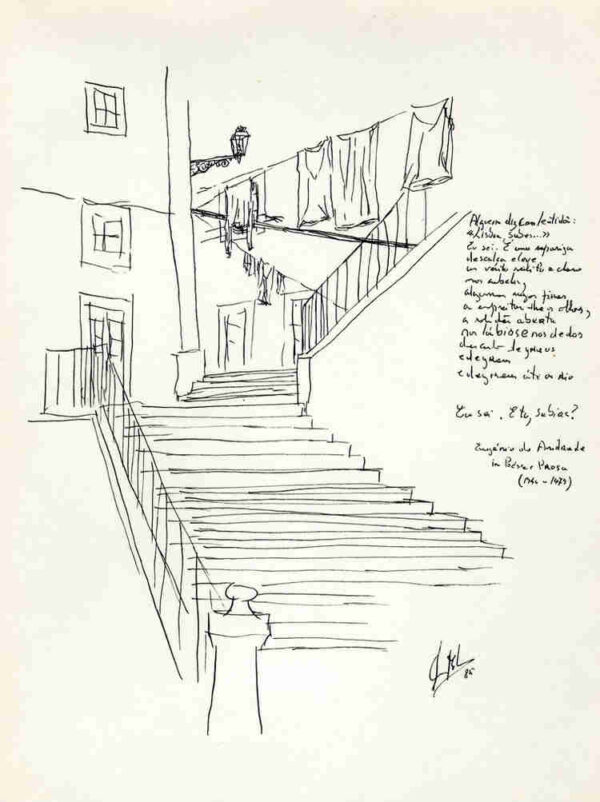 Alguém diz com lentidão:
«Lisboa, sabes...»
Eu sei. É uma rapariga
descalça e leve,
um vento súbito e claro
nos cabelos,
algumas rugas finas
a espreitar-lhe os olhos,
a solidão aberta
nos lábios e nos dedos
descendo degraus
e degraus
e degraus até ao rio
Eu sei. E tu, sabias?
Eugénio de Andrade
in Poesia e Prosa
(1940 - 1979)